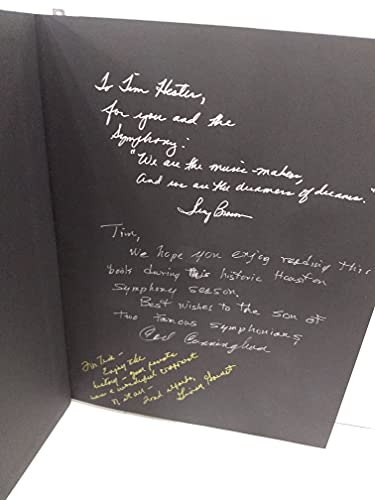 To Tim Hester,
for you and the
Symphony:
"We are the music makers,
And we are the dreamers of dreams."
Tim,
We hope you enjoy reading this
book during this historic Houston
Symphony season.
Best wishes to the son of
two famous symphonians,
Carl Cunningham
Enjoy the
history - your parents
was a wonderful
of it all -